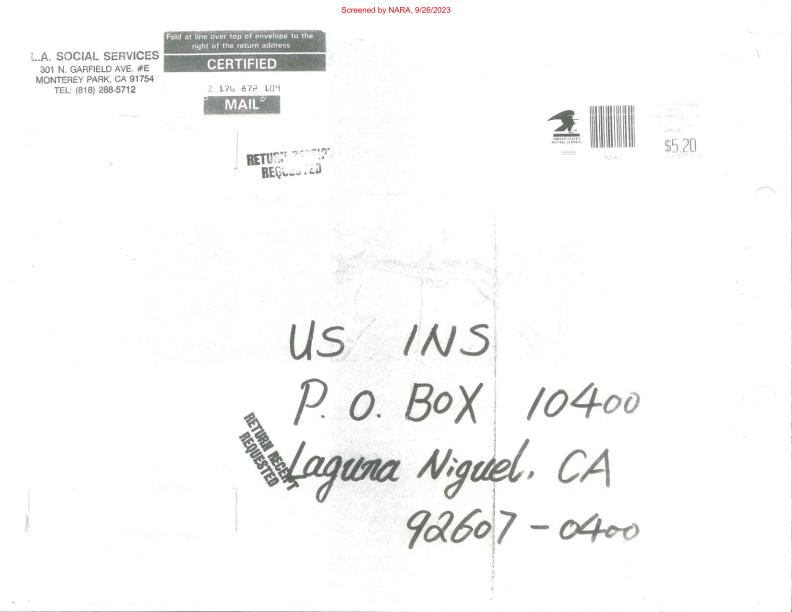 Screened by NARA, 9/26/2023
L.A. SOCIAL SERVICES
301 N. GARFIELD AVE. #E
MONTEREY PARK, CA 91754
TEL: (818) 288-5712
Fold at line over top of envelope to the
right of the return address
CERTIFIED
Z 176 872 109
MAIL
RETURN RECEIPT
REQUESTED
UNITED STATES
POSTAL SERVICE
$5.20
US INS
P. O. BOX 10400
RETURN RECEIPT
REQUESTED
Laguna Niguel, CA
92607-0400